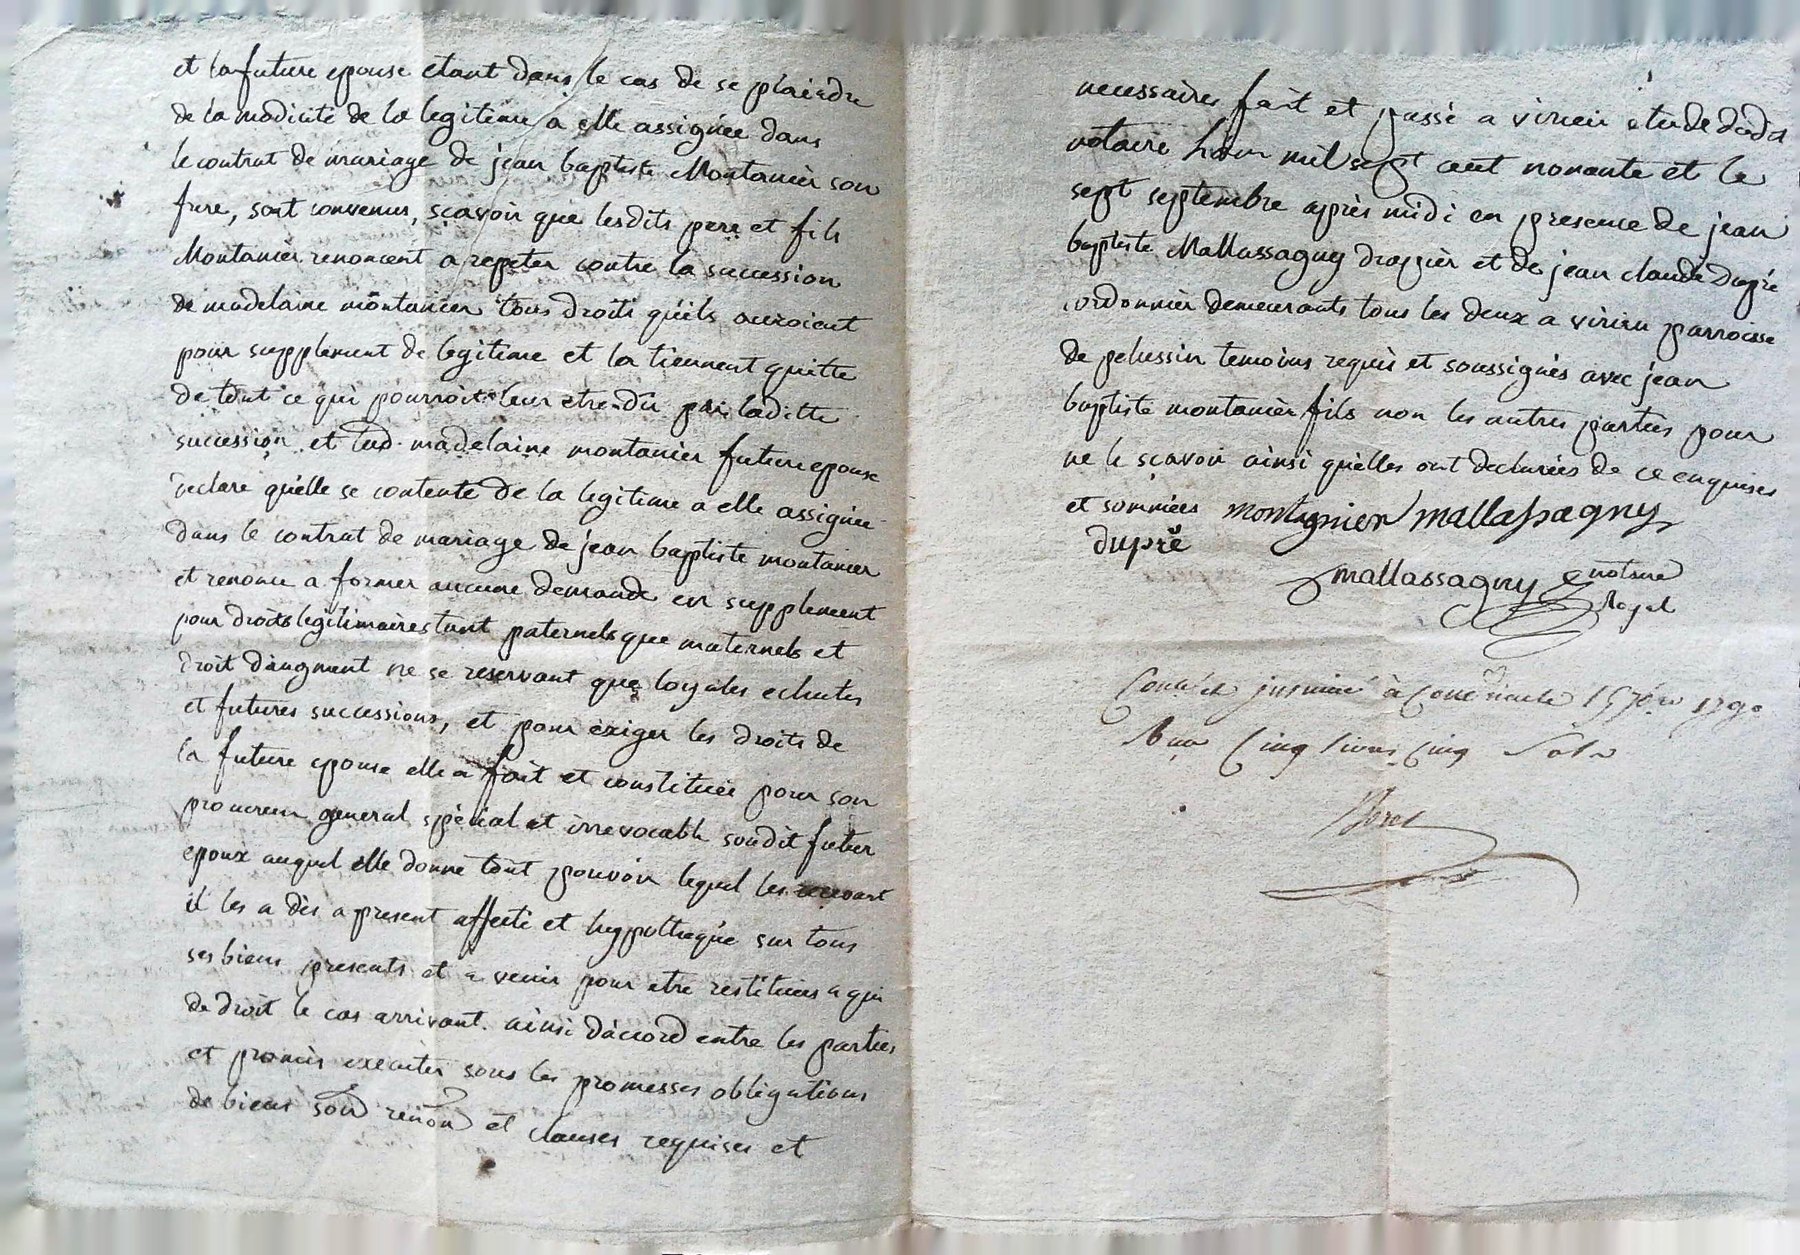 et la future epouse etant dans le cas de se plaindre
de la modicité de la legitime a elle assignée dans
le contrat de mariage de jean baptiste Montanier son
frere, sont convenus, sçavoir que lesdits pere et fils
Montanier renoncent a repeter contre la succession
de madelaine montanier tous droits quils auroient
pour supplement de legitime et la tiennent quitte
de tout ce qui pourroit leur etre du par laditte
succession et lad. madelaine montanier future epouse
declare quelle se contente de la legitime a elle assignée
dans le contrat de mariage de jean baptiste montanier
et renonce a former aucune demande en supplement
pour droits legitimaires tant paternels que maternels et
droit d'augment ne se reservant que loyales echutes
et futures successions, et pour exiger les droits de
la future epouse elle a fait et constitué pour son
procureur general spécial et irrevocable sondit futur
epoux auquel elle donne tout pouvoir lequel les recevant
il les a dès a present affecté et hypothequé sur tous
ses biens presents et a venir pour etre restitués a qui
de droit le cas arrivant. ainsi d'accord entre les parties
et promis executer sous les promesses obligations
de biens soud renon et clauses requises et
necessaires fait et passé a virieu etude dudit
notaire lan mil sept cent nonante et le
sept septembre après midi en presence de jean
baptiste Mallassagny drapier et de jean claude dupré
cordonnier demeurants tous les deux a virieu parroisse
de pelussin temoins requis et soussignés avec jean
baptiste montanier fils non les autres parties pour
ne le sçavoir ainsi quelles ont declarées de ce enquises
et sommées montagnier mallassagny
dupré
mallassagny notaire
Royal
Controlé et insinué à 15 7bre 1790
Reçu Cinq livres Cinq Sols